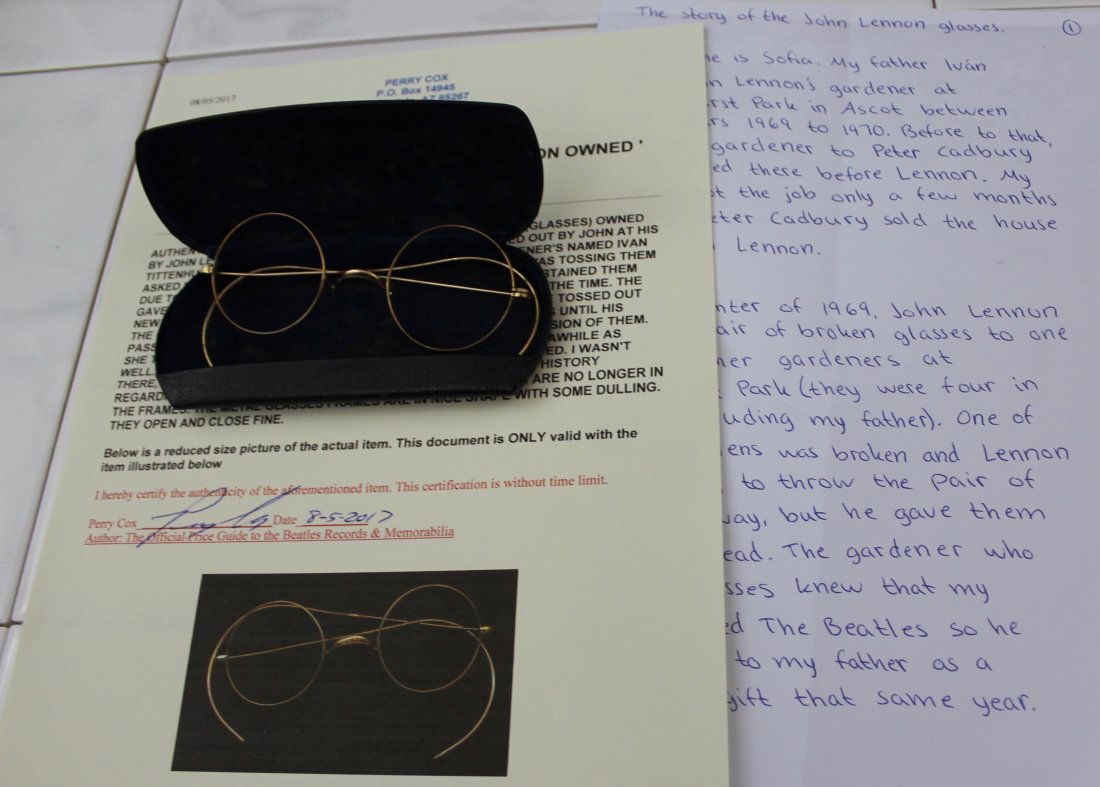 08/05/2017
PERRY COX
P.O. Box 14945
AZ 85267
ON OWNED '
GLASSES) OWNED
BY JOHN ED OUT BY JOHN AT HIS
ENER'S NAMED IVAN
ASKED WAS TOSSING THEM
DUE
GAVE THE TIME. THE
NEW TOSSED OUT
THE UNTIL HIS
PASS SION OF THEM.
SHE AWHILE AS
WELL. ED. I WASN'T
THERE, HISTORY
REGARD ARE NO LONGER IN
THE FRAMES. THE METAL GLASSES FRAMES ARE IN NICE SHAPE WITH SOME DULLING.
THEY OPEN AND CLOSE FINE.
Below is a reduced size picture of the actual item. This document is ONLY valid with the
item illustrated below
I hereby certify the authenticity of the aforementioned item. This certification is without time limit.
Perry Cox Date 8-5-2017
Author: The Official Price Guide to the Beatles Records & Memorabilia
The story of the John Lennon glasses. 1
e is Sofia. My father Iván
n Lennon's gardener at
rst Park in Ascot between
rs 1969 to 1970. Before to that,
gardener to Peter Cadbury
ed there before Lennon. My
ot the job only a few months
eter Cadbury sold the house
Lennon.
nter of 1969, John Lennon
air of broken glasses to one
her gardeners at
Park (they were four in
uding my father). One of
ens was broken and Lennon
to throw the pair of
way, but he gave them
ead. The gardener who
sses knew that my
ed The Beatles so he
to my father as a
gift that same year.